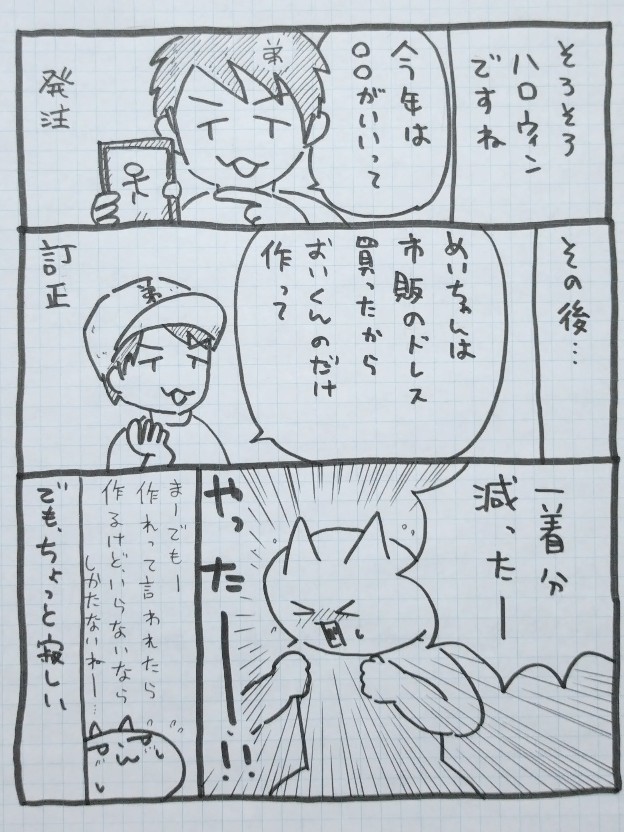 そろそろ
ハロウィン
ですね
今年は
○○がいいって
弟
発注
その後…
めいちゃんは
市販のドレス
買ったから
おいくんのだけ
作って
弟
訂正
一着分
減ったー
やったーーー!!
まーでもー
作れって言われたら
作るけど、いらないなら
しかたないねー…
でも、ちょっと寂しい